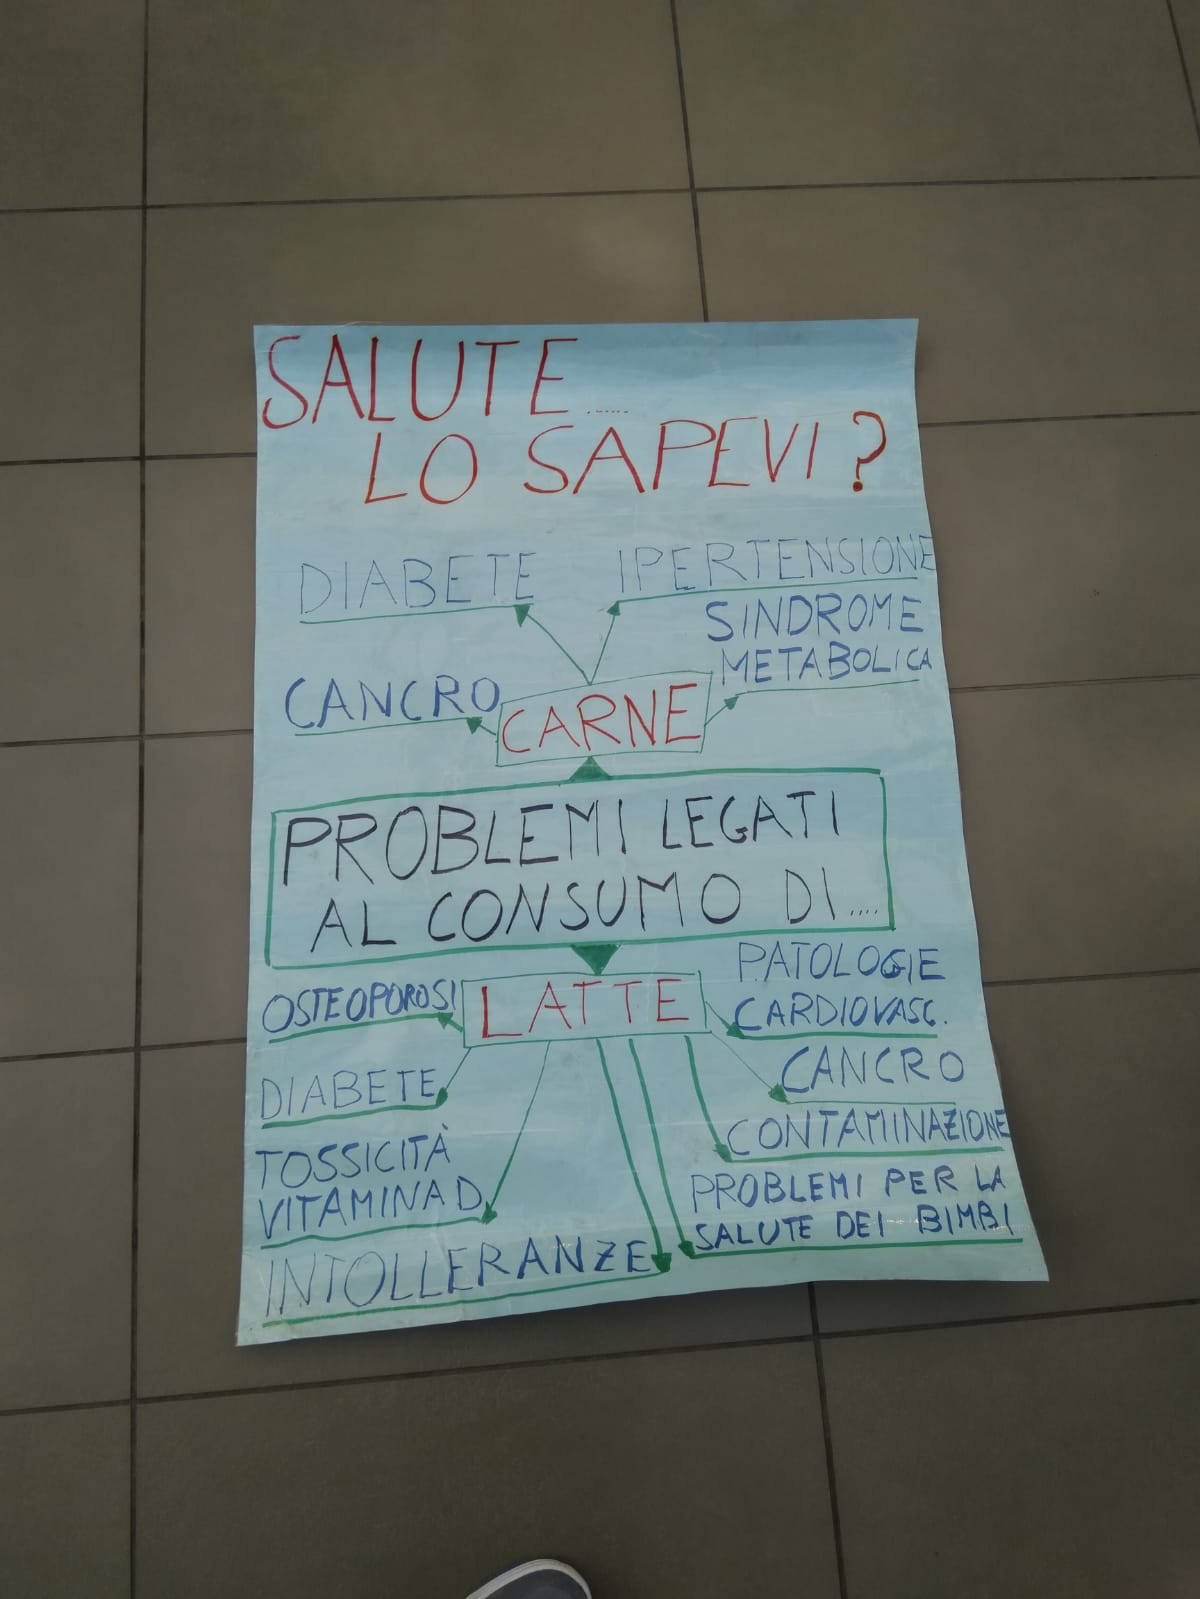 SALUTE......
LO SAPEVI?
DIABETE
IPERTENSIONE
SINDROME
METABOLICA
CANCRO
CARNE
PROBLEMI LEGATI
AL CONSUMO DI....
LATTE
OSTEOPOROSI
PATOLOGIE
CARDIOVASC.
DIABETE
CANCRO
TOSSICITÀ
VITAMINA D
CONTAMINAZIONE
INTOLLERANZE
PROBLEMI PER LA
SALUTE DEI BIMBI